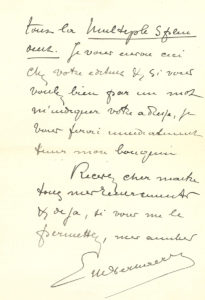 tous la Multiple Splen
deur. Je vous envoie ceci
chez votre éditeur &, si vous
voulez bien par un mot
m'indiquer votre adresse, je
vous ferai immédiatement
tenir mon bouquin
Recevez cher maître
tous mes remerciements
& déjà, si vous me le
permettez, mes amitiés
Em Verhaeren